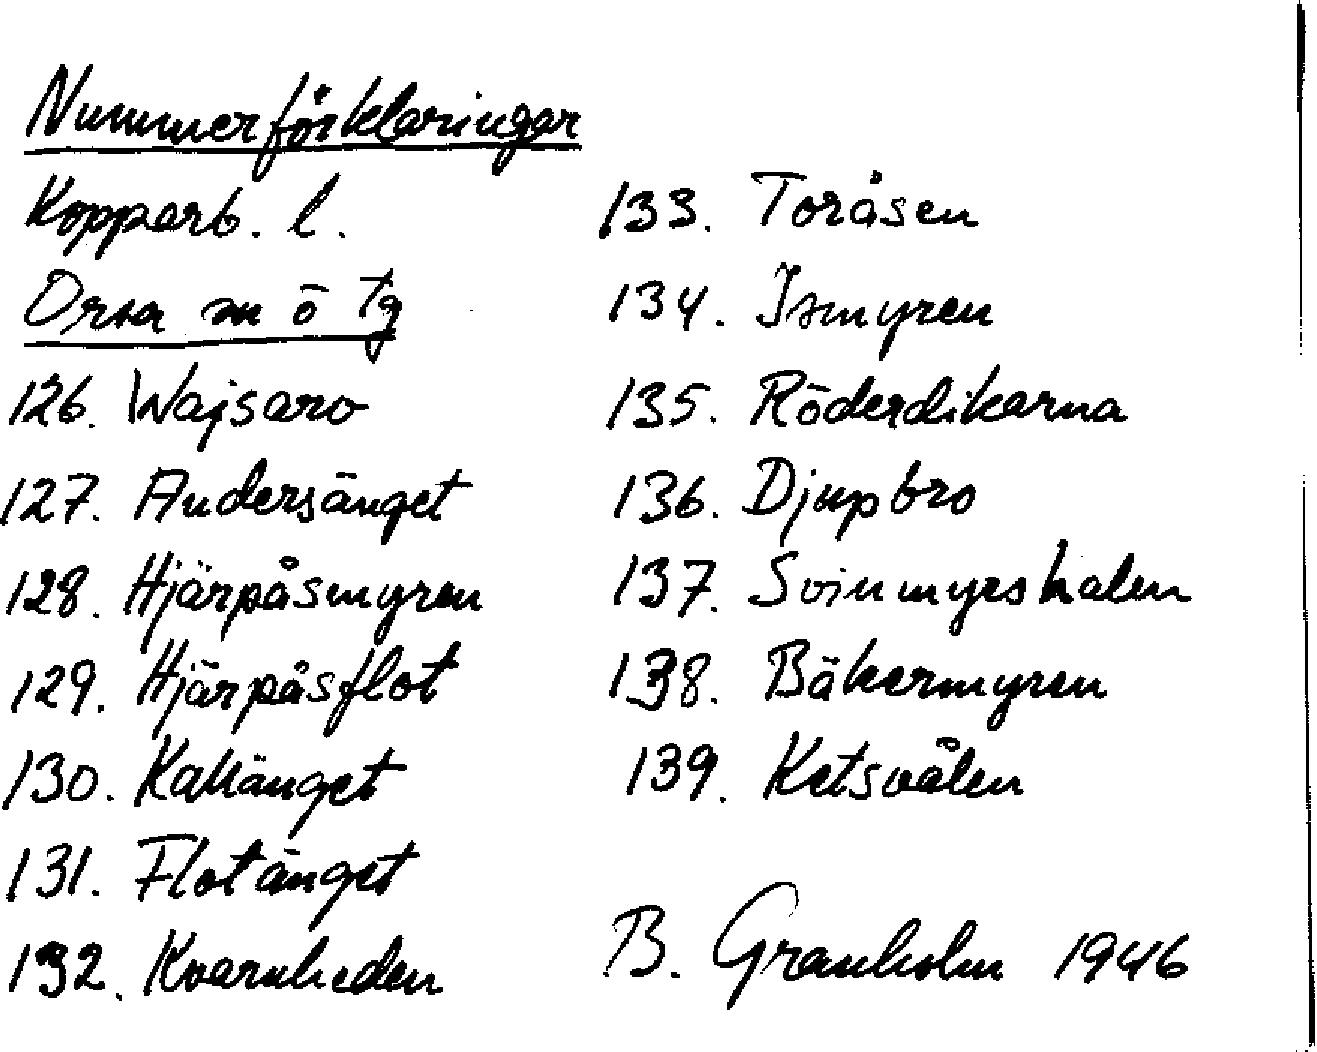 Nummerförklaringar
Kopparb. l.
Orsa sn ö Tg
126. Wajsaro
127. Andersänget
128. Hjärpåsmyren
129. Hjärpåsflot
130. Kallänget
131. Flotänget
132. Kvarnheden
133. Toråsen
134. Ismyren
135. Röderdikarna
136. Djupbro
137. Svinmyrshalen
138. Bäkermyren
139. Ketsvålen
B. Granholm 1946